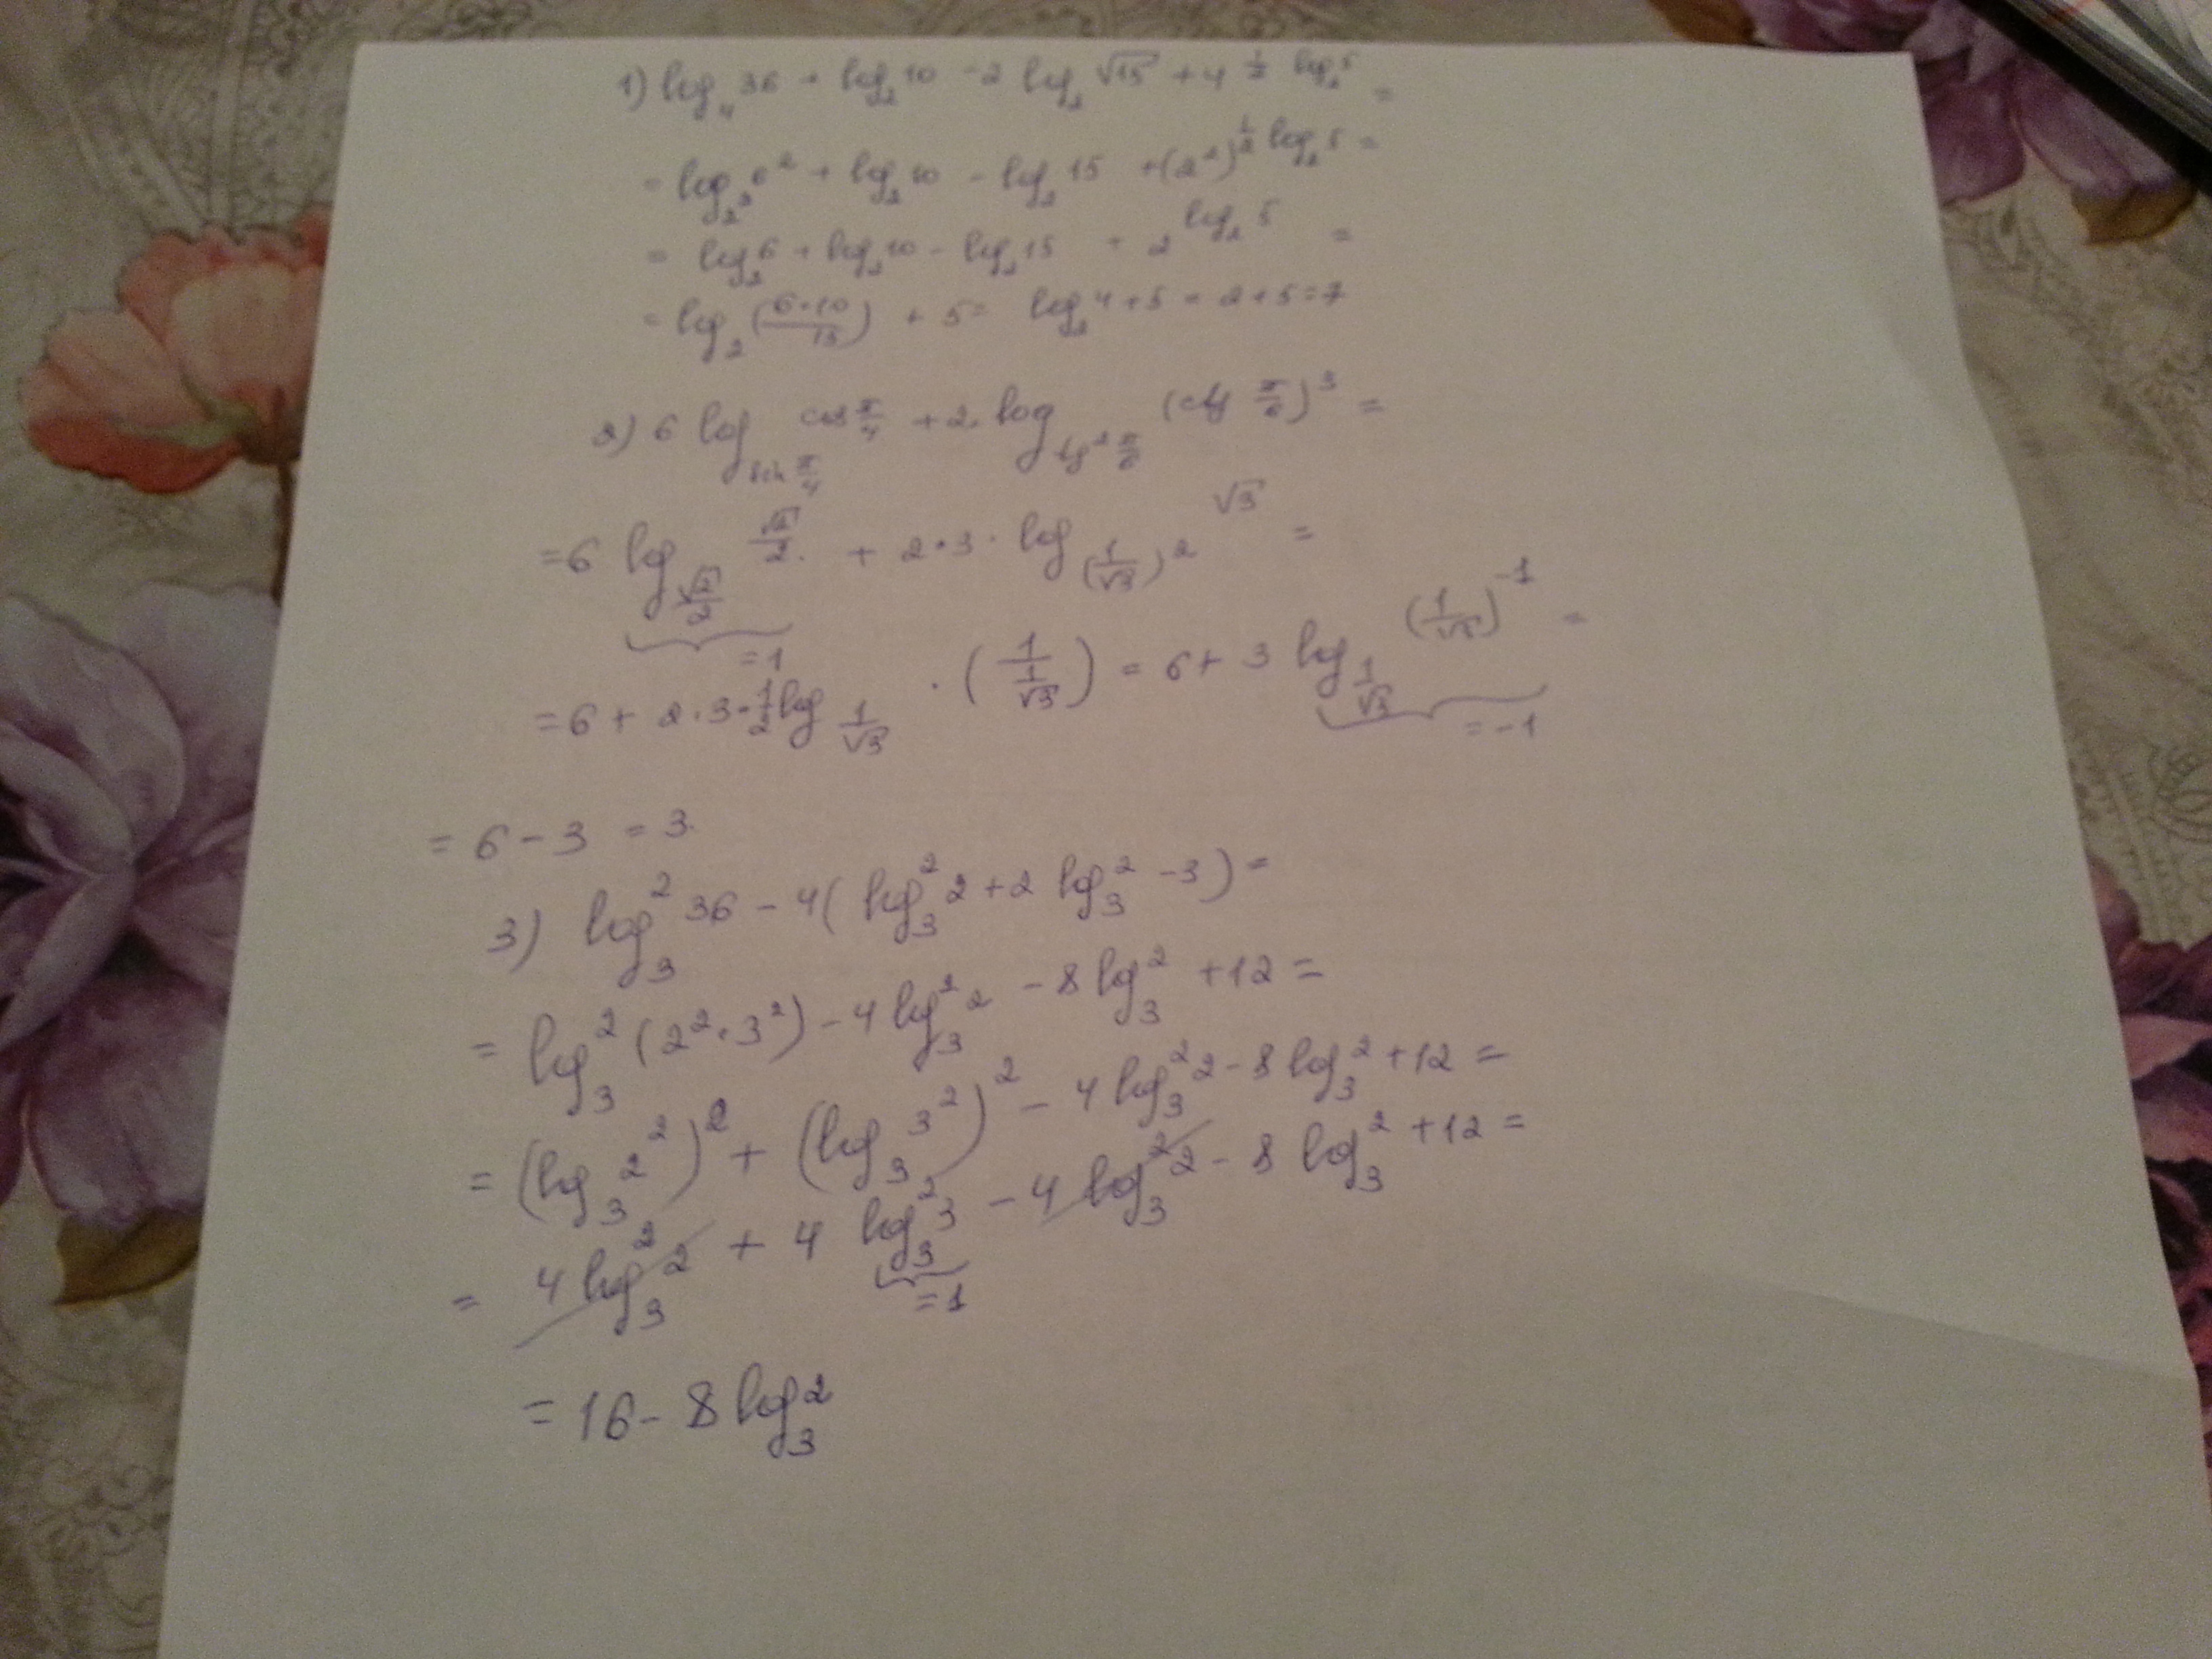 1) log₄ 36 + log₂ 10 - 2 log₂ √15 + 4^(1/2 log₂ 5) =
= log_(2²) 6² + log₂ 10 - log₂ 15 + (2²)^(1/2 log₂ 5) =
= log₂ 6 + log₂ 10 - log₂ 15 + 2^(log₂ 5) =
= log₂ (6·10/15) + 5 = log₂ 4 + 5 = 2 + 5 = 7
2) 6 log_(sin π/4) cos π/4 + 2 · log_(tg² π/6) (ctg π/6)³ =
= 6 log_(√2/2) √2/2 + 2·3· log_((1/√3)²) √3 =
= 1
= 6 + 2·3·1/2 log_(1/√3) · (1/(1/√3)) = 6 + 3 log_(1/√3) (1/√3)⁻¹ =
= -1
= 6 - 3 = 3.
3) log₃² 36 - 4( log₃² 2 + 2 log₃ 2 - 3) =
= log₃² (2² · 3²) - 4 log₃² 2 - 8 log₃ 2 + 12 =
= (log₃ 2²)² + (log₃ 3²)² - 4 log₃² 2 - 8 log₃ 2 + 12 =
= 4 log₃² 2 + 4 log₃² 3 - 4 log₃² 2 - 8 log₃ 2 + 12 =
= 1
= 16 - 8 log₃ 2